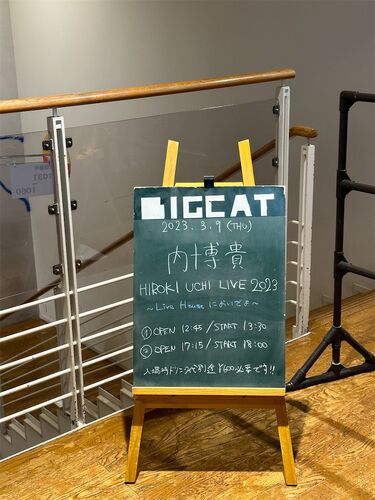 BIGCAT
2023.3.9 (THU)
内博貴
HIROKI UCHI LIVE 2023
~Live House においでよ~
① OPEN 12:45 / START 13:30
② OPEN 17:15 / START 18:00
入場時ドリンク代別途 ¥600必要です!!
1031
~
1060